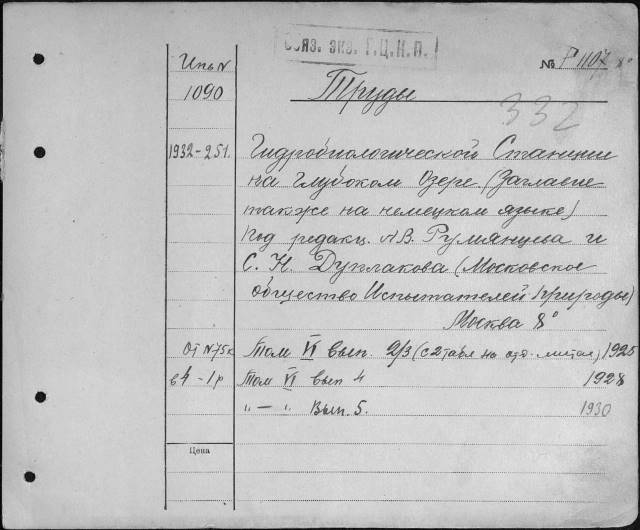 Обяз. экз. Г.Ц.К.П.
Инв N
№ Р 1107 8°
1090
Труды
332
1932-251.
Гидробиологической Станции
на Глубоком Озере (Заглавие
также на немецком языке)
Под редакц. А.В. Румянцева и
С. Н. Дуплакова (Московское
общество Испытателей природы)
Москва 8°
От N 75к
Том VI вып. 2/3 (с 2 табл на отд. листах) 1925
в 4 - 1 р
Том VI вып 4 1928
" — " Вып. 5. 1930
Цена